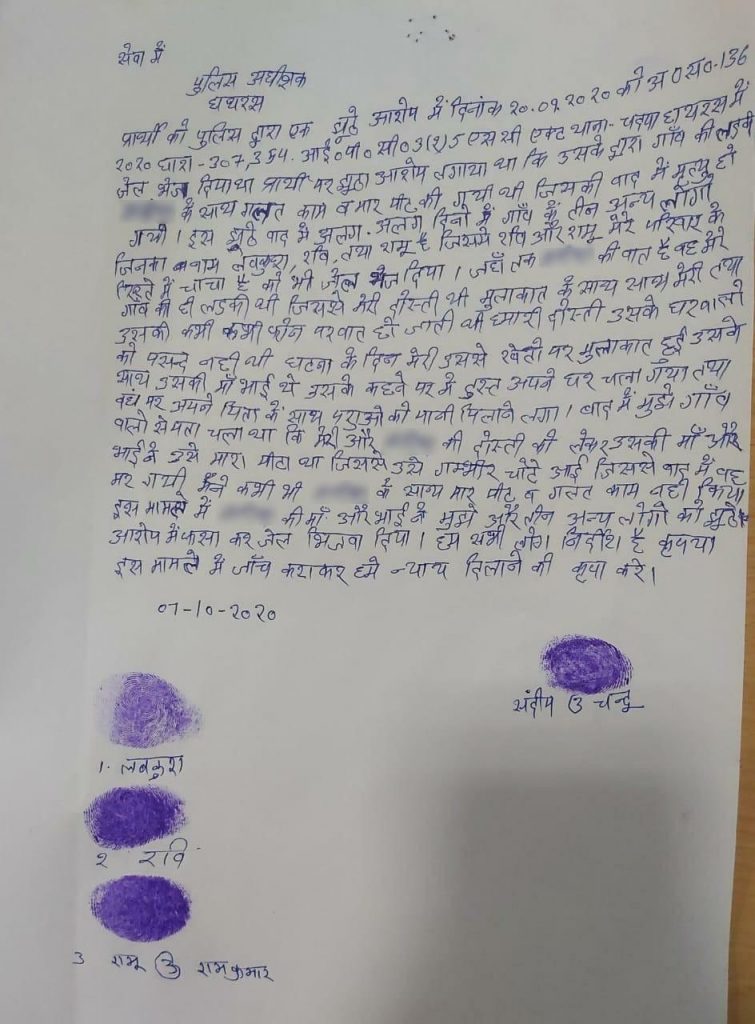 सेवा में
पुलिस अधीक्षक
हाथरस
प्रार्थी को पुलिस द्वारा एक झूठे आरोप में दिनांक २०.०९.२०२० को अ०स०-136
२०२० धारा-307, 354. आई०पी०सी० 3(2)5 एस सी एक्ट थाना-चन्दपा हाथरस में
जेल भेज दिया था प्रार्थी पर झूठा आरोप लगाया था कि उसके द्वारा गाँव की लड़की
के साथ गलत काम व मार पीट की गयी थी जिसकी बाद में मृत्यु हो
गयी। इस झूठे वाद में अलग-अलग दिनों में गाँव के तीन अन्य लोगों
जिनका नाम लवकुश, रवि, तथा रामू है जिसमे रवि और रामू मेरे परिवार के
रिश्ते में चाचा है को भी जेल भेज दिया। जहाँ तक की बात है वह मेरे
गाँव की ही लड़की थी जिससे मेरी दोस्ती थी मुलाकात के साथ साथ मेरी तथा
उसकी कभी कभी फोन पर बात हो जाती थी हमारी दोस्ती उसके घरवालो
को पसन्द नही थी घटना के दिन मेरी उससे खेतो पर मुलाकात हुई उसके
साथ उसकी माँ भाई थे उसके कहने पर मे तुरन्त अपने घर चला गया तथा
वहां पर अपने पिता के साथ पशुओ को पानी पिलाने लगा। बाद में मुझे गाँव
वालो से पता चला था कि मेरी और की दोस्ती को लेकर उसकी माँ और
भाई ने उसे मारा पीटा था जिससे उसे गम्भीर चोटे आई जिससे बाद में वह
मर गयी मैंने कभी भी के साथ मार पीट व गलत काम नही किया
इस मामले में की माँ और भाई ने मुझे और तीन अन्य लोगो को झूठे
आरोप में फसा कर जेल भिजवा दिया। हम सभी लोग निर्दोष है कृपया
इस मामले में जाँच कराकर हमे न्याय दिलाने की कृपा करे।
07-10-2020
संदीप उ चन्दू
1. लवकुश
२ रवि
3 रामू उ रामकुमार